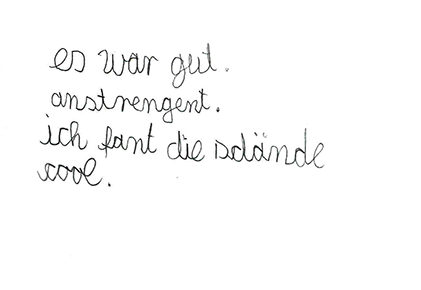 es war gut.
anstrengent.
ich fant die sdände
cool.